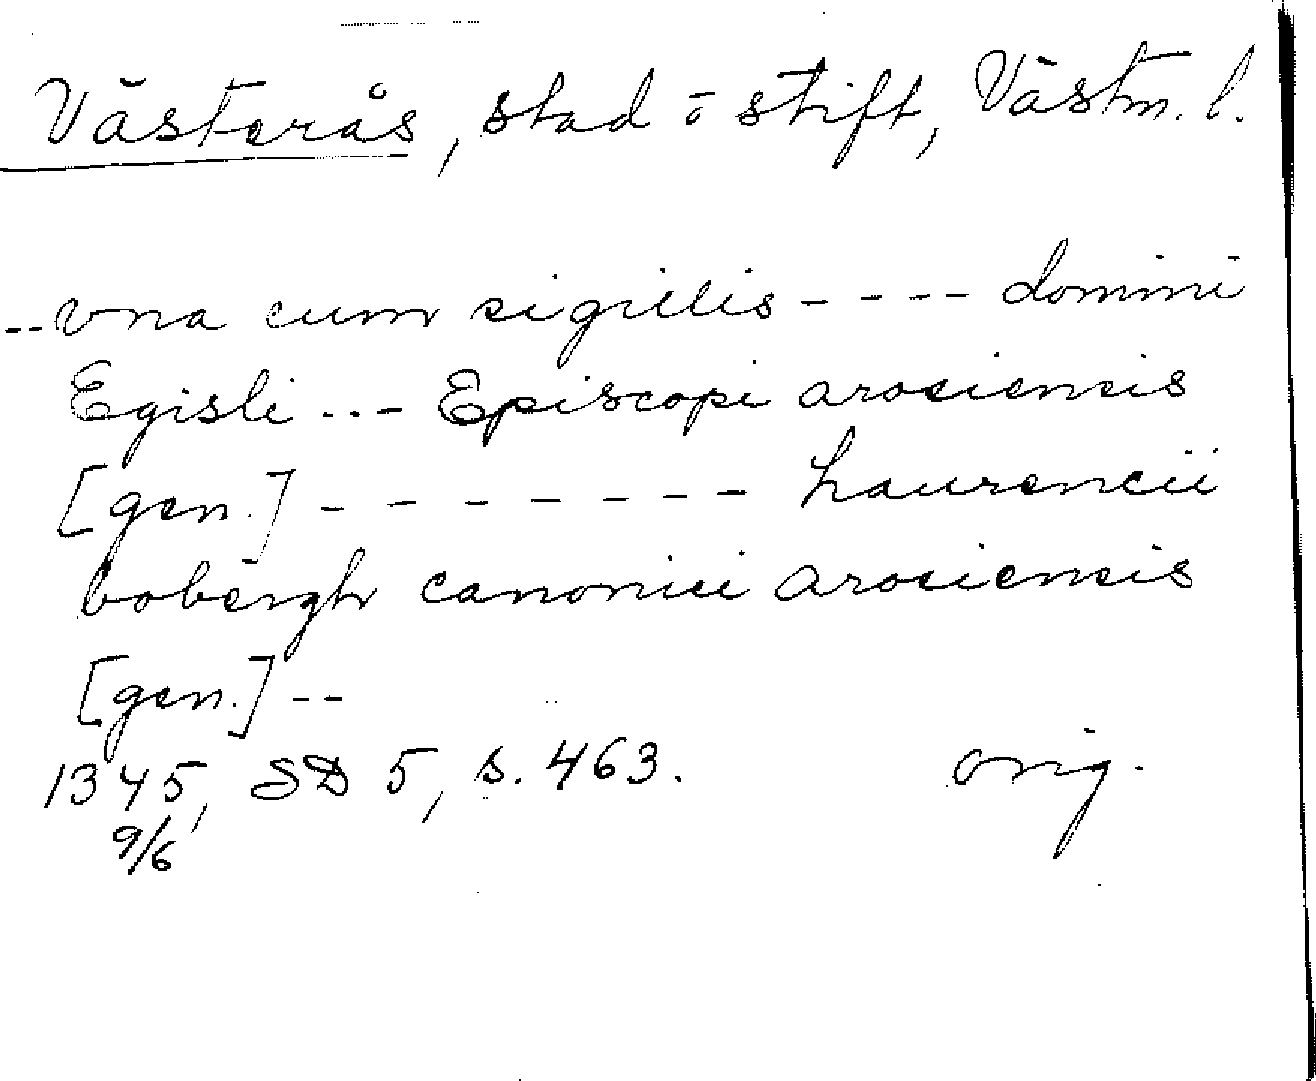 Västerås, stad o stift, Västm. l.
-- vna cum sigillis - - - - domini
Egisli --- Episcopi arosiensis
[gen.] - - - - - - - laurencii
bobergh canonici arosiensis
[gen.] --
1345, SD 5, s. 463. orig.
9/6